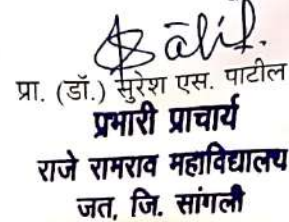 प्रा. (डॉ.) सुरेश एस. पाटील
प्रभारी प्राचार्य
राजे रामराव महाविद्यालय
जत, जि. सांगली